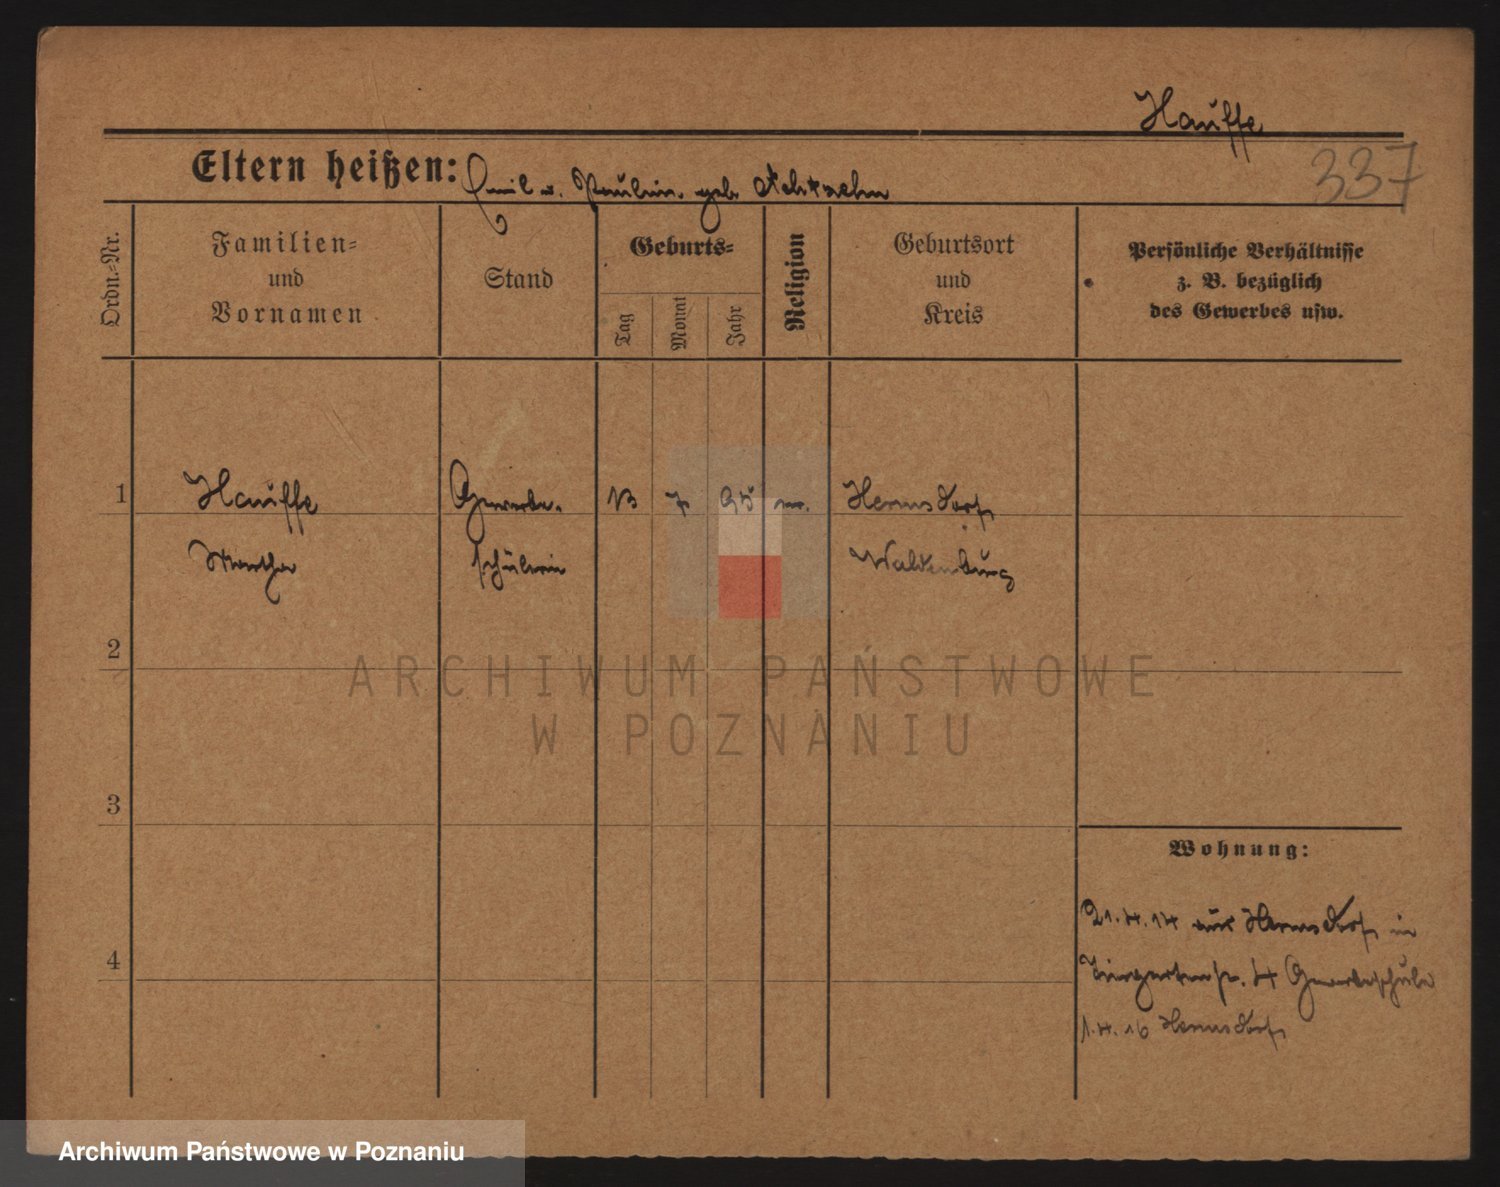 Hauffe
337
Eltern heißen: Emil u. Paulin. geb.
Ordn.-Nr.
Familien-
und
Vornamen
Stand
Geburts-
Tag
Monat
Jahr
Religion
Geburtsort
und
Kreis
Persönliche Verhältnisse
z. B. bezüglich
des Gewerbes usw.
1
Hauffe Gewerbe- 13 7 95 Hermsdorf
Martha schülerin Waldenburg
2
ARCHIWUM PAŃSTWOWE
W POZNANIU
3
Wohnung:
21.4.14 aus Hermsdorf in
4
Tiergartenstr. 4 Gewerbeschule
1.4.16 Hermsdorf
Archiwum Państwowe w Poznaniu